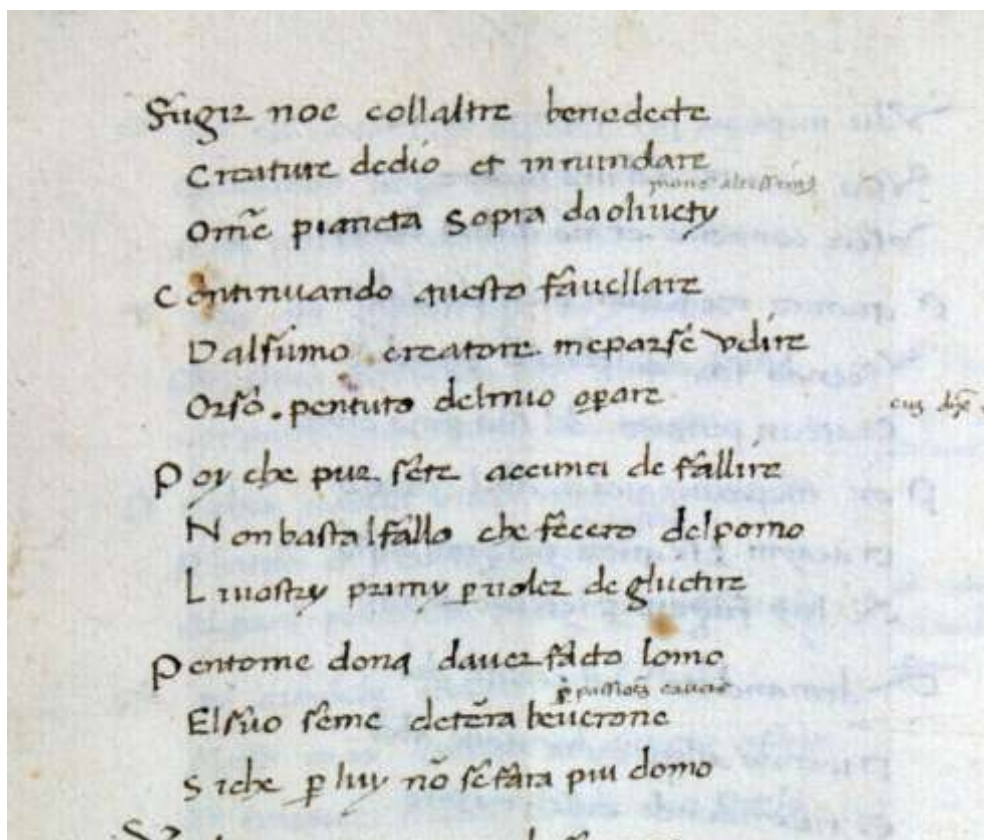 Fugir noe collaltre benedecte
Creature dedio et innundare
Om̃e piancta Sopra daoliuety
Continuando questo fauellare
Dalsũmo creatore meparse vdire
Orsõ. pentuto delmio oꝑare
Poy che pur sete accinti de fallire
Nonbastalfallo che fecero delpomo
Liuostry primy ꝑ uoler degluctire
Pentome donq dauer facto lomo
ꝑ passion̄
Elsuo seme detẽra beuerone
Siche ꝑ luy nõ sefara piu domo